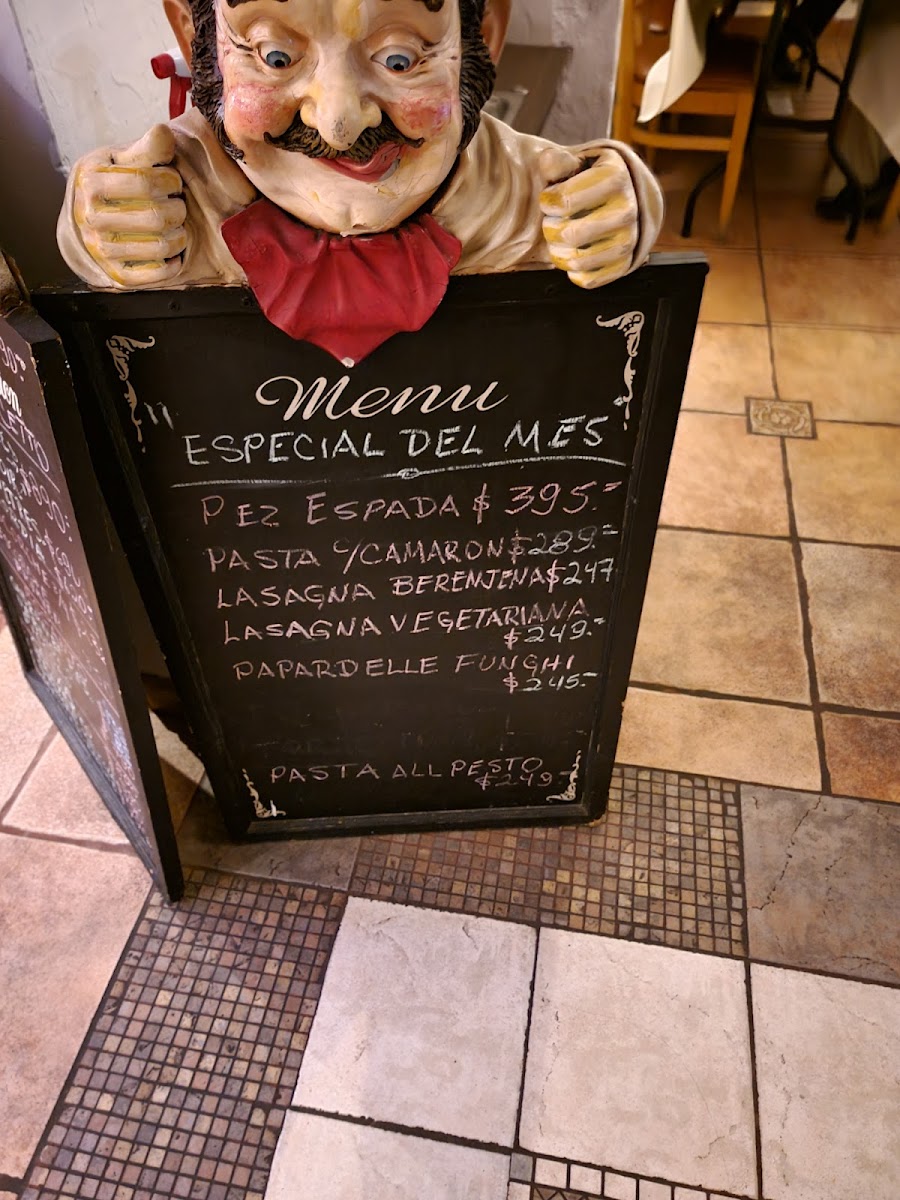 Menu
ESPECIAL DEL MES
PEZ ESPADA $ 395.-
PASTA C/CAMARON $289.-
LASAGNA BERENJENA $247
LASAGNA VEGETARIANA
$249.-
PAPARDELLE FUNGHI
$245.-
PASTA ALL PESTO
$249.-